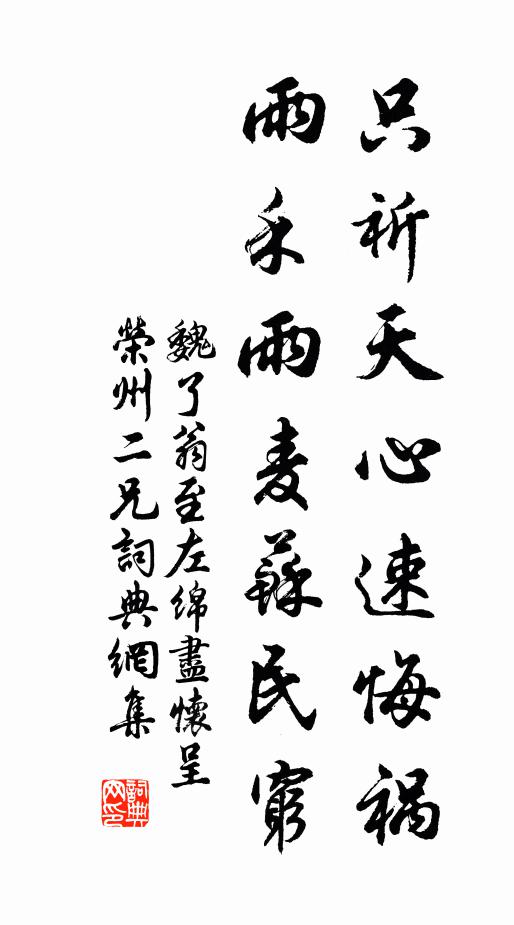 只祈天心速悔禍
雨禾雨麦蘇民窮
魏了翁至左綿盡懷呈
榮州二兄詞典網集
詞典
网印